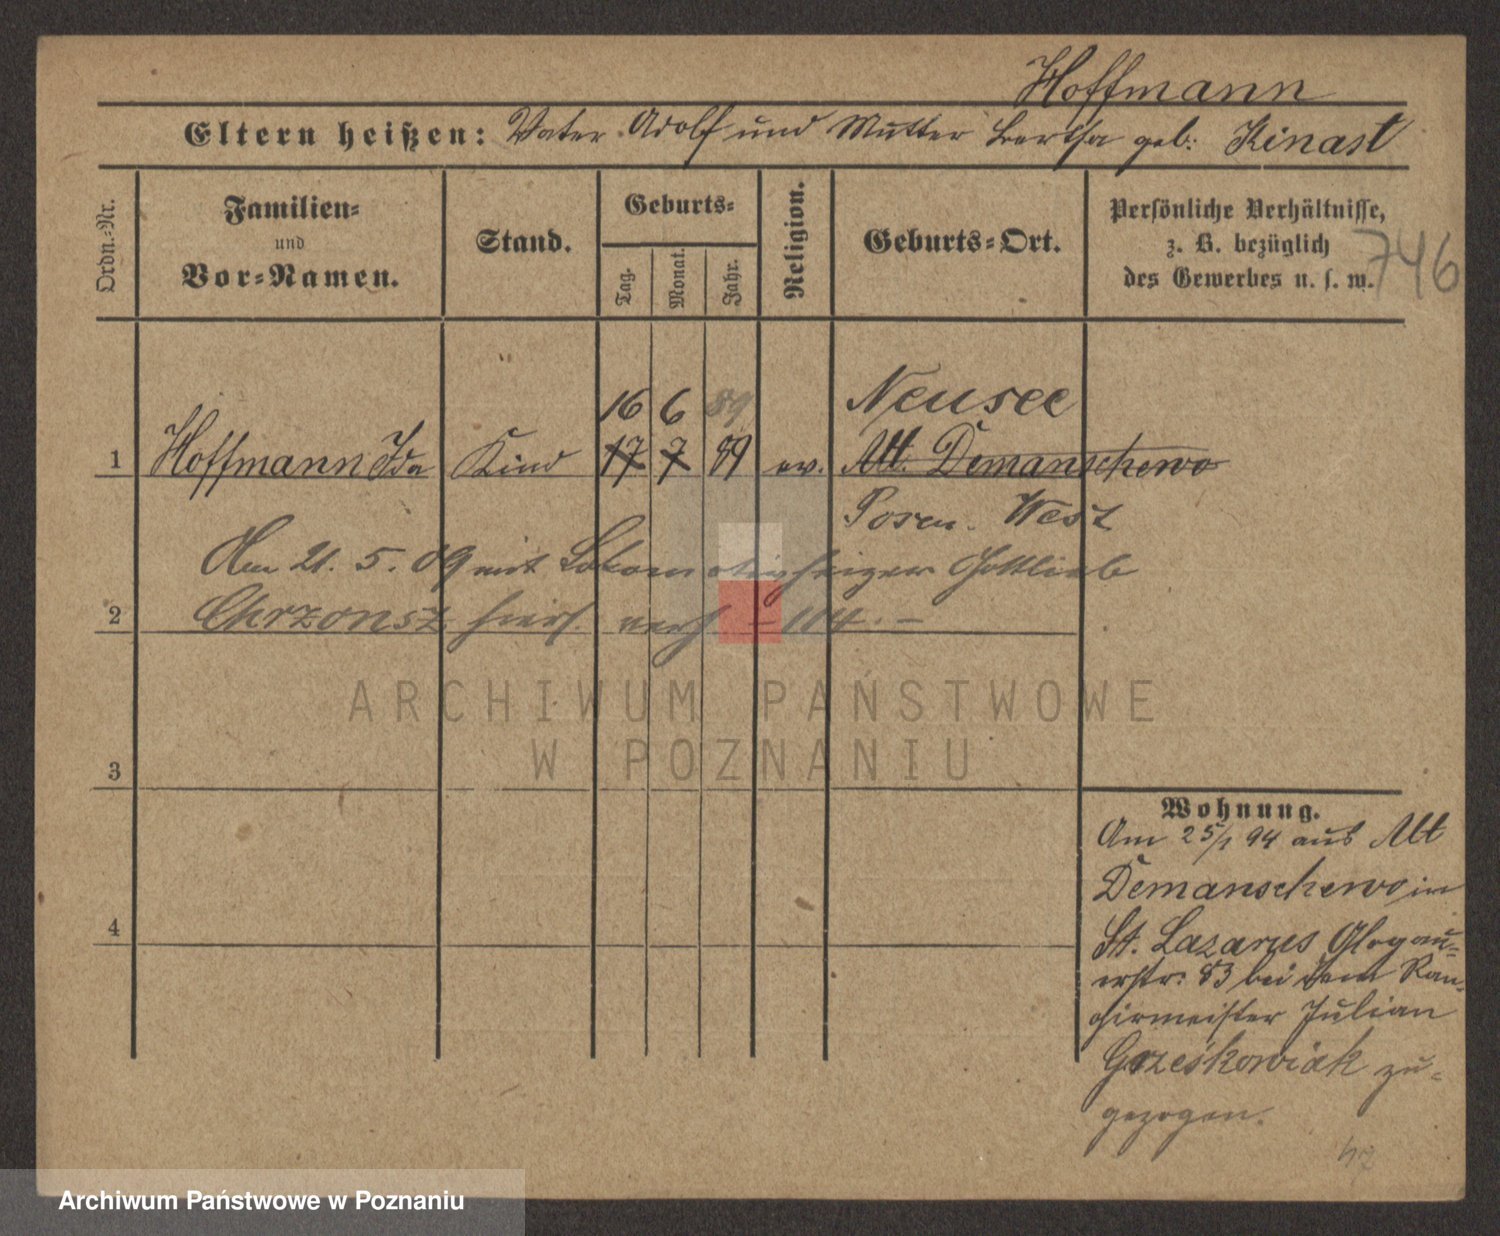 Hoffmann
Eltern heißen: Vater Adolf und Mutter Bertha geb: Kinast
Ordn.-Nr.
Familien-
und
Vor-Namen.
Stand.
Geburts-
Tag.
Monat.
Jahr.
Religion.
Geburts-Ort.
Persönliche Verhältnisse,
z. B. bezüglich
des Gewerbes u. s. w.
746
16 6 89 Neusee
1 Hoffmann Ida Kind 17 7 89 ev. Alt. Demanschewo
Posen. West
Am 21. 5. 09 mit Gottlieb
2 Chrzonsz hiers. verh - 114. -
ARCHIWUM PAŃSTWOWE
W POZNANIU
3
Wohnung.
Am 25/1 94 aus Alt
Demanschewo in
4 St. Lazarus Glogau-
erstr: 83 bei dem Ran-
girmeister Julian
Grześkowiak zu-
gezogen.
Archiwum Państwowe w Poznaniu